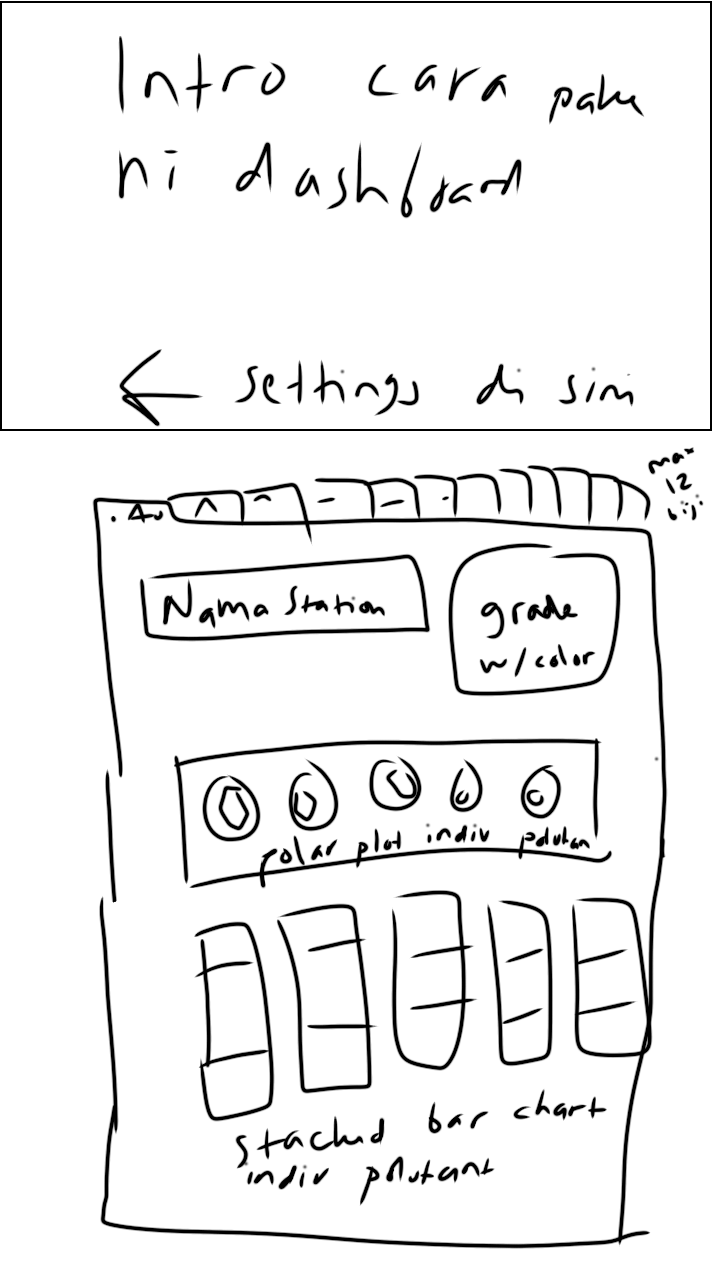 Intro cara pake
ni dashboard
← settings di sini
max
12
biji
Nama Station
grade
w/color
polar plot indiv polutan
stacked bar chart
indiv polutant